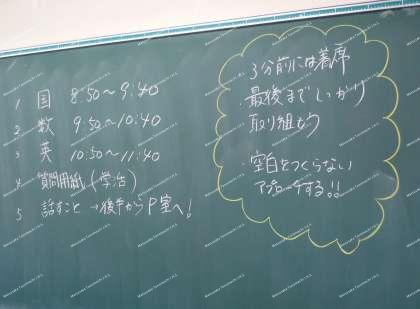 1 国 8:50～9:40
2 数 9:50～10:40
3 英 10:50～11:40
4 質問用紙(学活)
5 話すこと→後半からP室へ!
3分前には着席
・最後までしっかり
取り組もう
・空白をつくらない
アプローチする!!